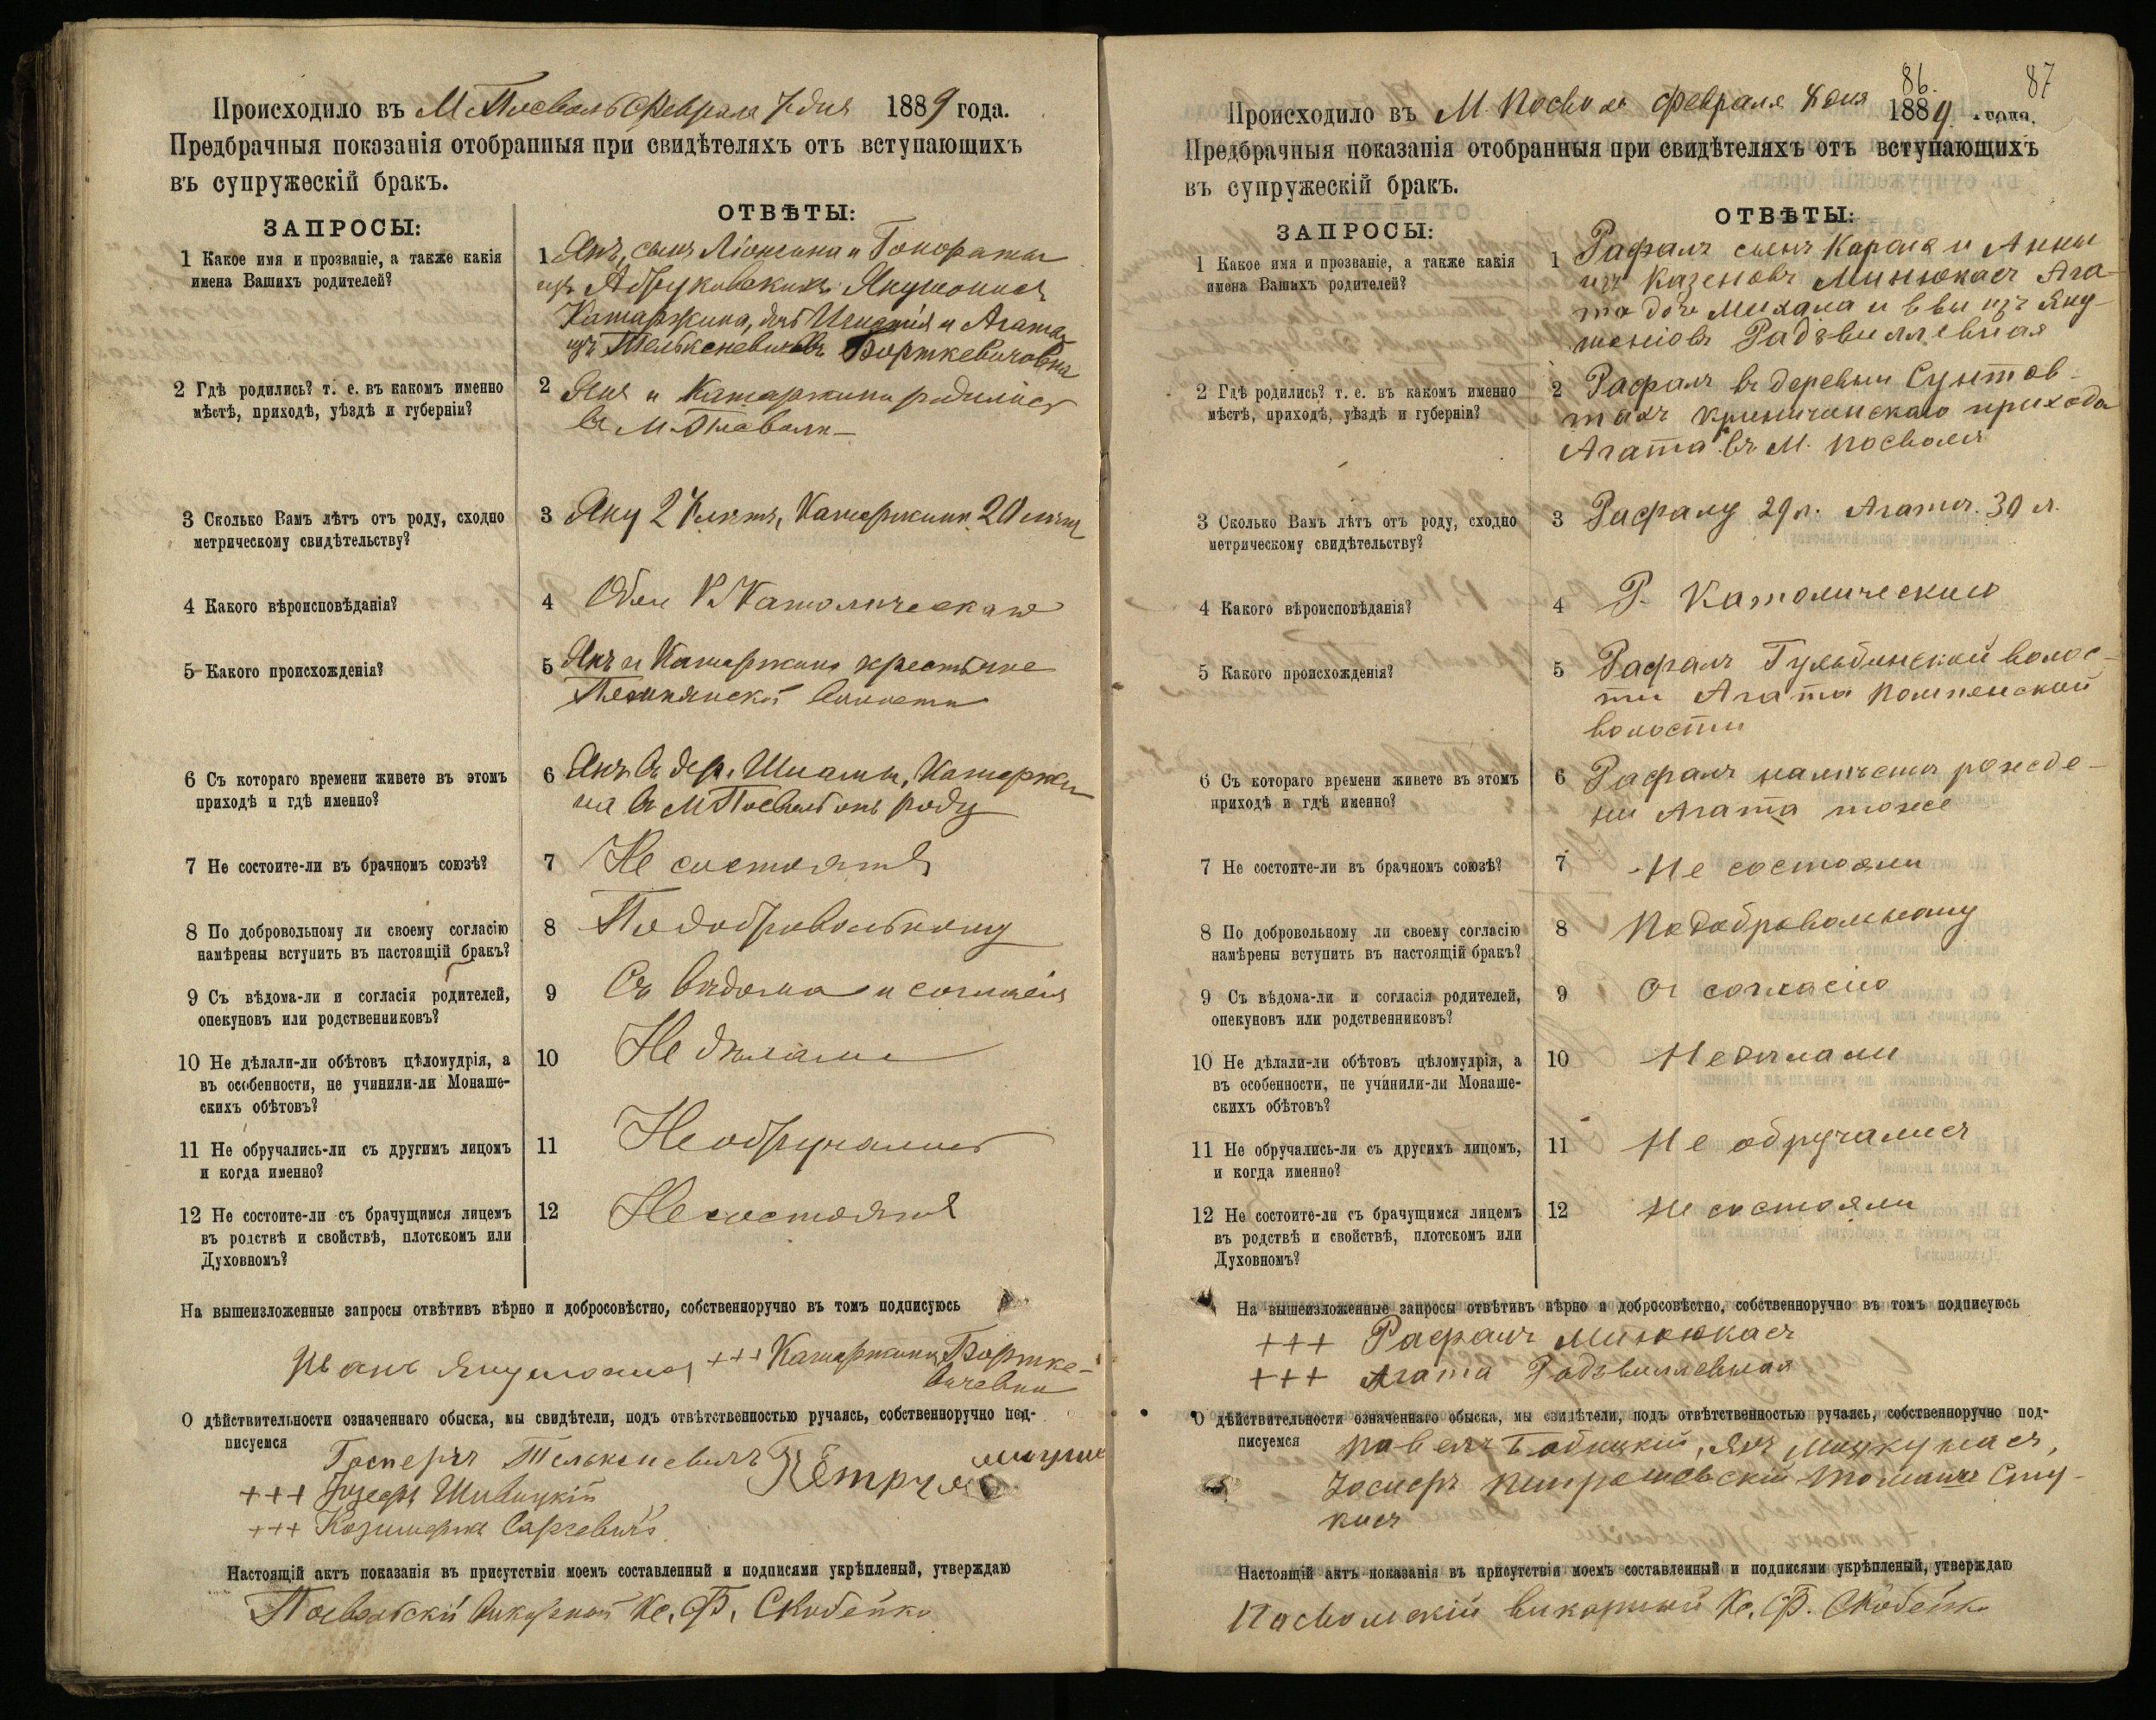 Происходило въ М Посволь Февраля 7 дня 1889 года.
Предбрачныя показанія отобранныя при свидѣтеляхъ отъ вступающихъ
въ супружескій бракъ.
ЗАПРОСЫ:
ОТВѢТЫ:
1 Какое имя и прозваніе, а также какія
имена Вашихъ родителей?
1 Янъ, сынъ и Гонораты
изъ Якушонисъ
Катаржина, дчь Игнатія и Агаты
изъ Телькеневичовъ Борткевичовна
2 Гдѣ родились? т. е. въ какомъ именно
мѣстѣ, приходѣ, уѣздѣ и губерніи?
2 Янъ и Катаржина родились
въ М.
3 Сколько Вамъ лѣтъ отъ роду, сходно
метрическому свидѣтельству?
3 Яну лѣтъ, Катаржинѣ 20 лѣтъ
4 Какого вѣроисповѣданія?
4 Обои Р Католическаго
5 Какого происхожденія?
5 Янъ и Катаржина крестьяне
волости
6 Съ котораго времени живете въ этомъ
приходѣ и гдѣ именно?
6 Янъ въ дер. Катаржи
на въ М Посволь отъ роду
7 Не состоите-ли въ брачномъ союзѣ?
7 Не состоятъ
8 По добровольному ли своему согласію
намѣрены вступить въ настоящій бракъ?
8 По добровольному
9 Съ вѣдома-ли и согласія родителей,
опекуновъ или родственниковъ?
9 Съ вѣдома и согласія
10 Не дѣлали-ли обѣтовъ цѣломудрія, а
въ особенности, не учинили-ли Монаше-
скихъ обѣтовъ?
10 Не дѣлали
11 Не обручались-ли съ другимъ лицомъ
и когда именно?
11 Не обручались
12 Не состоите-ли съ брачущимся лицемъ
въ родствѣ и свойствѣ, плотскомъ или
Духовномъ?
12 Не состоятъ
На вышеизложенные запросы отвѣтивъ вѣрно и добросовѣстно, собственноручно въ томъ подписуюсь
+++ Катаржина Бортке-
вичевна
О дѣйствительности означеннаго обыска, мы свидѣтели, подъ отвѣтственностью ручаясь, собственноручно под-
писуемся
Телькеневичъ
+++ Іозефъ
+++
Настоящій актъ показанія въ присутствіи моемъ составленный и подписями укрѣпленый, утверждаю
Посвольскій викарный Кс. Ф. Скобейко
86. 87
Происходило въ М. Посволь Февраля 8 дня 1889 года.
Предбрачныя показанія отобранныя при свидѣтеляхъ отъ вступающихъ
въ супружескій бракъ.
ЗАПРОСЫ:
ОТВѢТЫ:
1 Какое имя и прозваніе, а также какія
имена Вашихъ родителей?
1 Рафалъ сынъ Кароля и Анны
изъ Казеновъ Минюкасъ Ага-
та дочь Михала и Евы изъ Яку-
шоніовъ Радзвиллевная
2 Гдѣ родились? т. е. въ какомъ именно
мѣстѣ, приходѣ, уѣздѣ и губерніи?
2 Рафалъ въ деревни Сунтов-
тахъ Криничинскаго прихода
Агата въ М. Посволя
3 Сколько Вамъ лѣтъ отъ роду, сходно
метрическому свидѣтельству?
3 Рафалу 29 л. Агатѣ. 30 л.
4 Какого вѣроисповѣданія?
4 Р. Католическаго
5 Какого происхожденія?
5 Рафалъ Гульбинской волос-
ти Агата Помпянской
волости
6 Съ котораго времени живете въ этомъ
приходѣ и гдѣ именно?
6 Рафалъ рожде-
ни Агата тоже
7 Не состоите-ли въ брачномъ союзѣ?
7 Не состояли
8 По добровольному ли своему согласію
намѣрены вступить въ настоящій бракъ?
8 По добровольному
9 Съ вѣдома-ли и согласія родителей,
опекуновъ или родственниковъ?
9 Съ согласію
10 Не дѣлали-ли обѣтовъ цѣломудрія, а
въ особенности, не учинили-ли Монаше-
скихъ обѣтовъ?
10 Не дѣлали
11 Не обручались-ли съ другимъ лицомъ,
и когда именно?
11 Не обручалися
12 Не состоите-ли съ брачущимся лицемъ
въ родствѣ и свойствѣ, плотскомъ или
Духовномъ?
12 Не состояли
На вышеизложенные запросы отвѣтивъ вѣрно и добросовѣстно, собственноручно въ томъ подписуюсь
+++ Рафалъ Минюкасъ
+++ Агата Радзвиллевная
О дѣйствительности означеннаго обыска, мы свидѣтели, подъ отвѣтственностью ручаясь, собственноручно под-
писуемся
Павелъ Янъ
Томашъ Сту-
касъ
Настоящій актъ показанія въ присутствіи моемъ составленный и подписями укрѣпленый, утверждаю
Посвольскій викарный Кс. Ф. Скобейко